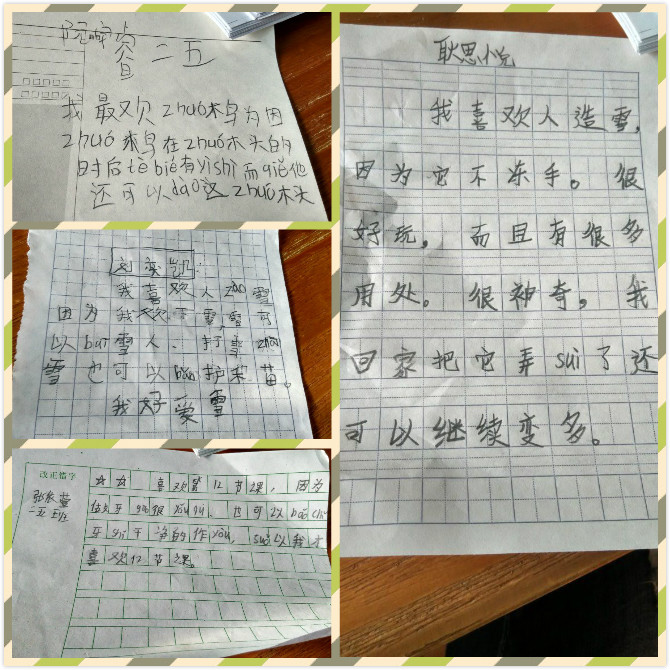 二五
我最欢贝zhuó木鸟为因
zhuó木鸟在zhuó木头的
时后tè bié有yì shi而qiě他
还可以dào这zhuó木头
我喜欢人zào雪
因为我欢下雪,雪可
以bāi雪人、打雪
雪也可以bǎo护禾苗。
我好爱雪
改正错字
二五班
喜欢第12节课,因为
可以bǎo chí
牙chǐ干净的作yòng,suǒ以我才
喜欢12节课。
耿思悦
我喜欢人造雪,
因为它不冻手。很
好玩,而且有很多
用处。很神奇,我
回家把它弄suì了还
可以继续变多。